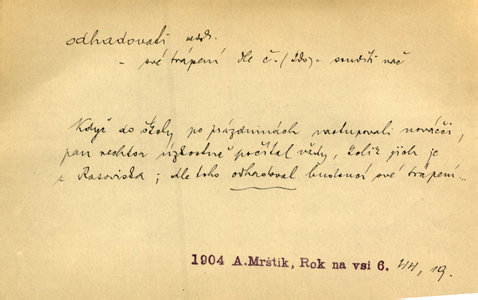 odhadovati nedok.
- své trápení dle č. (2do) - souditi nač
Když do školy po prázdninách nastupovali nováčci,
pan rechtor úzkostně počítal vždy, kolik jich je
z Rasoviska; dle toho odhadoval budoucí své trápení...
1904 A.Mrštík, Rok na vsi 6. 44, 19.